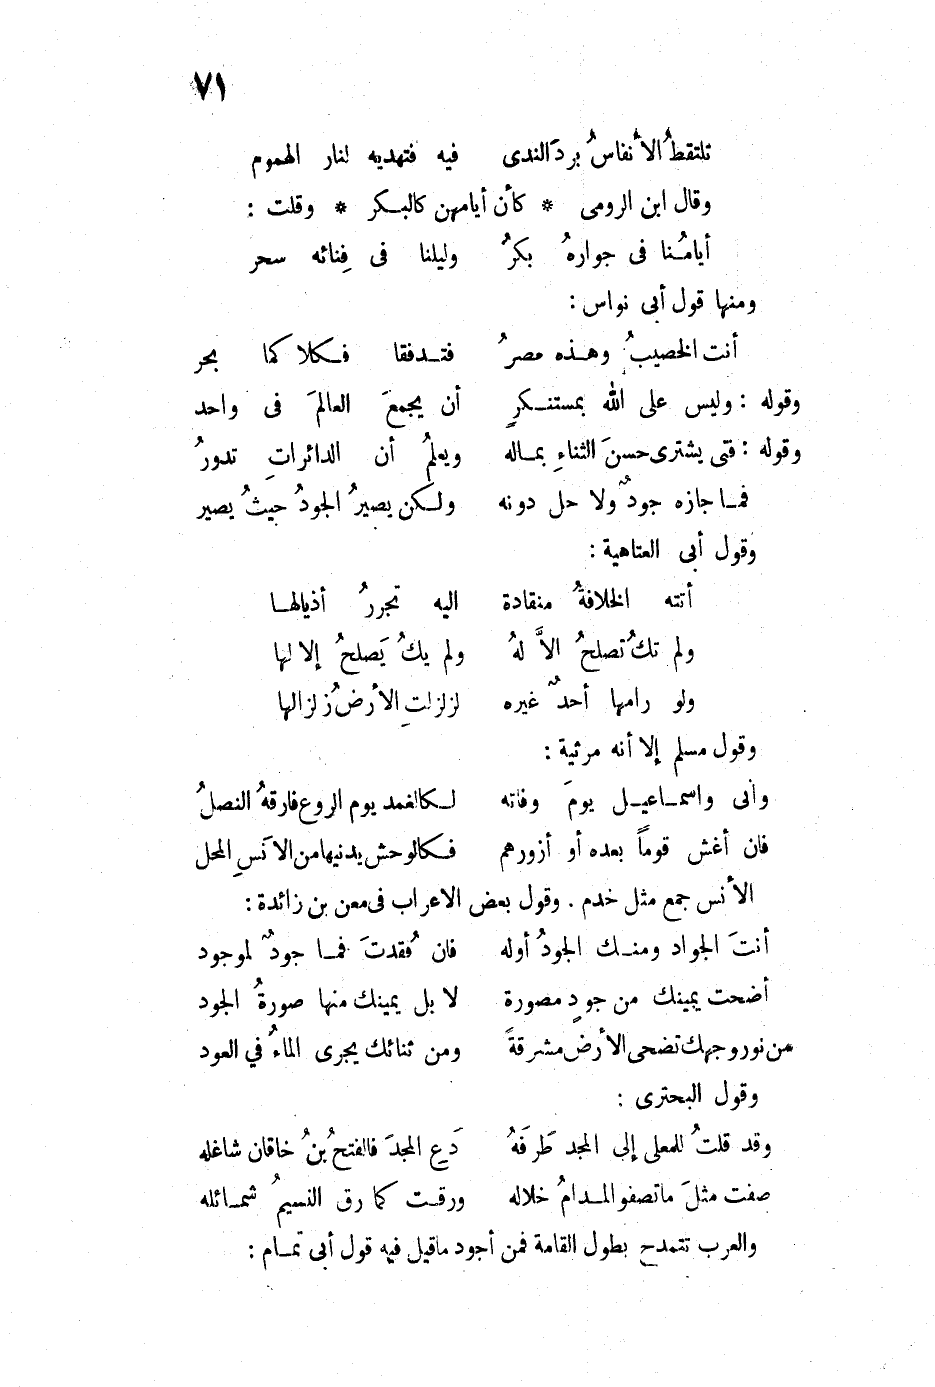 ٧١
تلتقطُ الأنفاسُ بردَ الندى فيه فتهديه لنار الهموم
وقال ابن الرومى * كأن أيامهن كالبكر * وقلت :
أيامُنا فى جوارهُ بكرُ وليلنا فى فِنائه سحر
ومنها قول أبى نواس :
أنت الخصيبُ وهذه مصرُ فتدفقا فكلاكما بحر
وقوله : وليس على الله بمستنكرٍ أن يجمعَ العالمَ فى واحد
وقوله : فتى يشترى حسنَ الثناءِ بماله ويعلمُ أن الدائراتِ تدورُ
فما جازه جودٌ ولا حل دونه ولكن يصيرُ الجودُ حيثُ يصير
وقول أبى العتاهية :
أتته الخلافةُ منقادة اليه تجررُ أذيالها
ولم تكُ تصلحُ الاَّ لهُ ولم يكُ يَصلحُ إلا لها
ولو رامها أحدٌ غيره لزلزلتِ الأرضُ زلزالها
وقول مسلم إلا أنه مرثية :
وأنى واسماعيل يومَ وفاته لكالغمد يوم الروع فارقهُ النصلُ
فان أغش قوماً بعده أو أزورهم فكالوحش يدنيها من الآنسِ المحل
الأنس جمع مثل خدم . وقول بعض الاعراب فى معن بن زائدة :
أنتَ الجواد ومنك الجودُ أوله فان فُقدتَ فما جودٌ لموجود
أضحت يمينك من جودٍ مصورة لا بل يمينك منها صورةُ الجود
من نور وجهك تضحى الأرض مشرقةً ومن ثنائك يجرى الماءُ في العود
وقول البحترى :
وقد قلتُ للمعلى إلى المجد طَرفَهُ دَع المجدَ فالفتحُ بنُ خاقان شاغله
صفت مثلَ ماتصفو المدامُ خلاله ورقت كما رق النسيمُ شمائله
والعرب تتمدح بطول القامة فمن أجود ماقيل فيه قول أبى تمام :